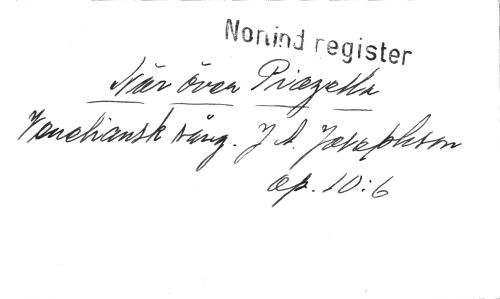 Norlind register
När över Piazetta
Venetiansk sång. J A. Josephson
op. 10:6